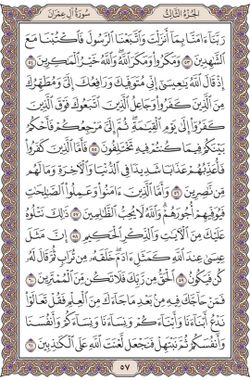 سُورَةُ آلِ عِمْرَانَ الجُزْءُ الثَّالِثُ
رَبَّنَآ ءَامَنَّا بِمَآ أَنزَلْتَ وَٱتَّبَعْنَا ٱلرَّسُولَ فَٱكْتُبْنَا مَعَ
ٱلشَّٰهِدِينَ ٥٣ وَمَكَرُوا۟ وَمَكَرَ ٱللَّهُ وَٱللَّهُ خَيْرُ ٱلْمَٰكِرِينَ ٥٤
إِذْ قَالَ ٱللَّهُ يَٰعِيسَىٰٓ إِنِّى مُتَوَفِّيكَ وَرَافِعُكَ إِلَىَّ وَمُطَهِّرُكَ
مِنَ ٱلَّذِينَ كَفَرُوا۟ وَجَاعِلُ ٱلَّذِينَ ٱتَّبَعُوكَ فَوْقَ ٱلَّذِينَ
كَفَرُوٓا۟ إِلَىٰ يَوْمِ ٱلْقِيَٰمَةِ ثُمَّ إِلَىَّ مَرْجِعُكُمْ فَأَحْكُمُ
بَيْنَكُمْ فِيمَا كُنتُمْ فِيهِ تَخْتَلِفُونَ ٥٥ فَأَمَّا ٱلَّذِينَ كَفَرُوا۟
فَأُعَذِّبُهُمْ عَذَابًا شَدِيدًا فِى ٱلدُّنْيَا وَٱلْءَاخِرَةِ وَمَا لَهُم
مِّن نَّٰصِرِينَ ٥٦ وَأَمَّا ٱلَّذِينَ ءَامَنُوا۟ وَعَمِلُوا۟ ٱلصَّٰلِحَٰتِ
فَيُوَفِّيهِمْ أُجُورَهُمْ وَٱللَّهُ لَا يُحِبُّ ٱلظَّٰلِمِينَ ٥٧ ذَٰلِكَ نَتْلُوهُ
عَلَيْكَ مِنَ ٱلْءَايَٰتِ وَٱلذِّكْرِ ٱلْحَكِيمِ ٥٨ إِنَّ مَثَلَ
عِيسَىٰ عِندَ ٱللَّهِ كَمَثَلِ ءَادَمَ خَلَقَهُۥ مِن تُرَابٍ ثُمَّ قَالَ لَهُۥ
كُن فَيَكُونُ ٥٩ ٱلْحَقُّ مِن رَّبِّكَ فَلَا تَكُن مِّنَ ٱلْمُمْتَرِينَ ٦٠
فَمَنْ حَآجَّكَ فِيهِ مِنۢ بَعْدِ مَا جَآءَكَ مِنَ ٱلْعِلْمِ فَقُلْ تَعَالَوْا۟
نَدْعُ أَبْنَآءَنَا وَأَبْنَآءَكُمْ وَنِسَآءَنَا وَنِسَآءَكُمْ وَأَنفُسَنَا
وَأَنفُسَكُمْ ثُمَّ نَبْتَهِلْ فَنَجْعَل لَّعْنَتَ ٱللَّهِ عَلَى ٱلْكَٰذِبِينَ ٦١
٥٧